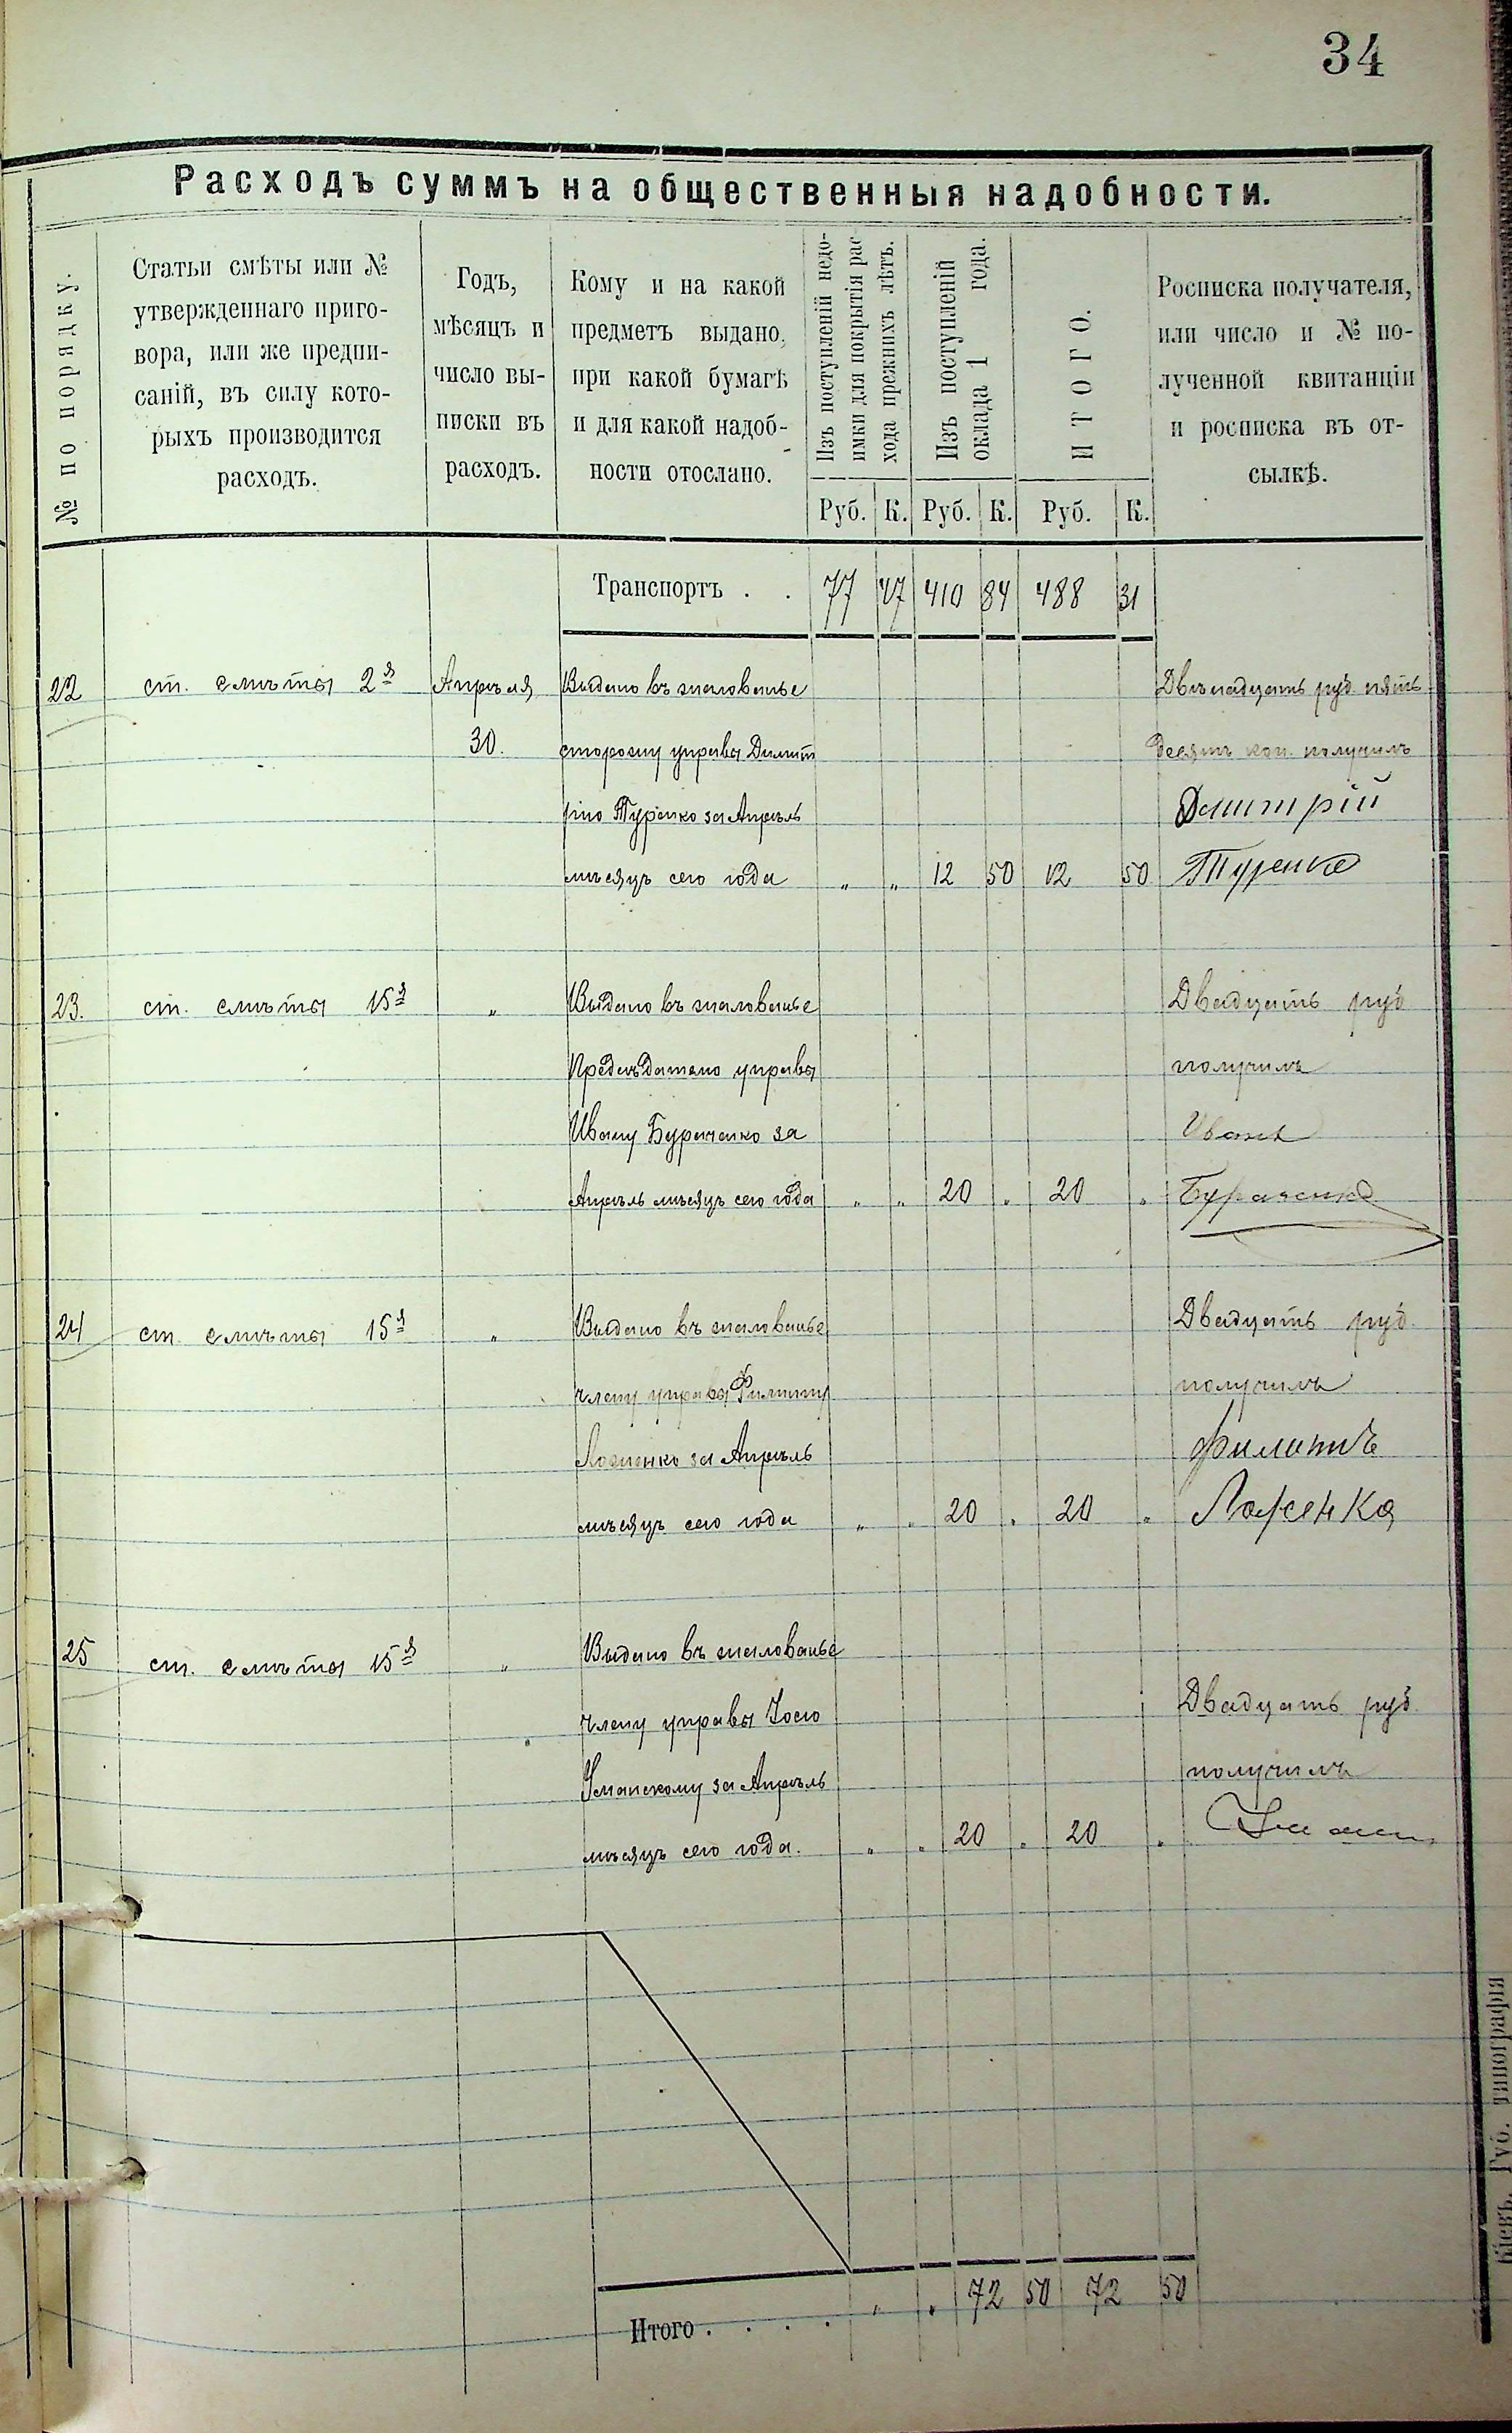 34
Расходъ суммъ на общественныя надобности.
№ по порядку.
Статьи смѣты или №
утвержденнаго приго-
вора, или же предпи-
саній, въ силу кото-
рыхъ производится
расходъ.
Годъ,
мѣсяцъ и
число вы-
писки въ
расходъ.
Кому и на какой
предметъ выдано,
при какой бумагѣ
и для какой надоб-
ности отослано.
Изъ поступленій недо-
имки для покрытія рас
хода прежнихъ лѣтъ.
Изъ поступленій
оклада 1 года.
ИТОГО.
Росписка получателя,
или число и № по-
лученной квитанціи
и росписка въ от-
сылкѣ.
Руб. К. Руб. К. Руб. К.
Транспортъ . . 77 47 410 84 488 31
22 ст. смѣты 2я Апрѣля Выдано въ жалованье Двѣнадцать руб. пять
30. сторожу управы Димит десятъ коп. получилъ
рію Туренко за Апрѣль Дмитрій
мѣсяцъ сего года „ „ 12 50 12 50 Туренко
23. ст. смѣты 15я „ Выдано въ жалованье Двадцать руб
Предсѣдателю управы получилъ
Ивану Бураченко за Иванъ
Апрѣль мѣсяцъ сего года „ „ 20 „ 20 „ Бураченко
24 ст. смѣты 15я „ Выдано въ жалованье Двадцать руб.
члену управы Филипу получилъ
Ложенко за Апрѣль Филипъ
мѣсяцъ сего года „ „ 20 „ 20 „ Ложенка
25 ст. смѣты 15я „ Выдано въ жалованье
члену управы Двадцать руб.
Уманскому за Апрѣль получилъ
мѣсяцъ сего года. „ „ 20 „ 20 „
Итого . . . . „ „ 72 50 72 50
Кіевъ. Губ. типографія